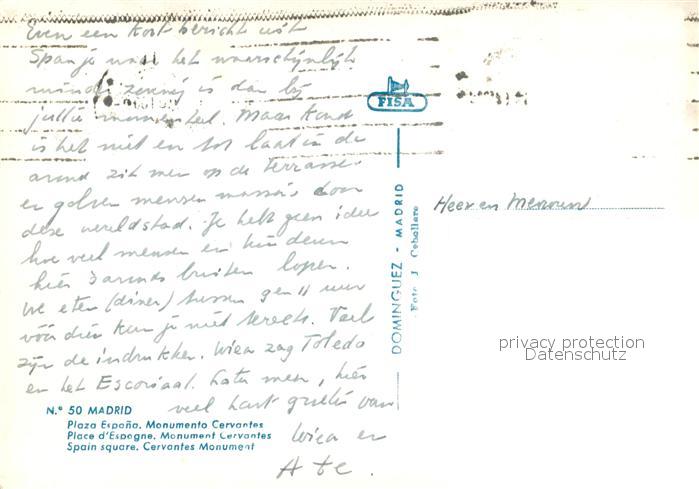 Even een kort bericht uit
Spanje waar het waarschijnlijk
minder zonnig is dan bij
jullie momenteel. Maar koud
is het niet en tot laat in de
avond zit men op de terrassen
en golven mensen massa's door
deze wereldstad. Je hebt geen idee
hoe veel mensen en kinderen
hier 's avonds buiten lopen.
We eten (diner) tussen 9 en 11 uur
vóór dien kun je niet terecht. Veel
zijn de indrukken. Wiea zag Toledo
en het Escoriaal. Later meer, hier
veel hart groeten van
Wiea en
Ate.
FISA
DOMINGUEZ - MADRID
Foto J. Ceballare
Heer en Mevrouw
privacy protection
Datenschutz
N.º 50 MADRID
Plaza España. Monumento Cervantes
Place d'Espagne. Monument Cervantes
Spain square. Cervantes Monument